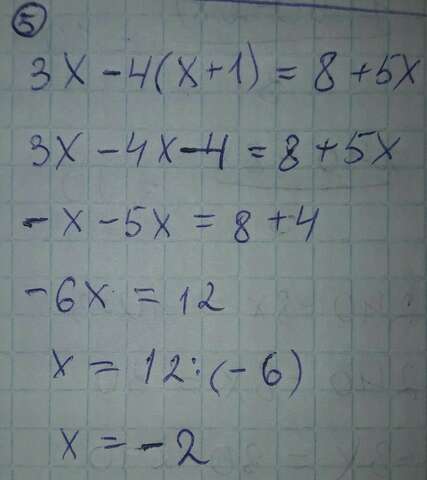 5
3x - 4(x+1) = 8 + 5x
3x - 4x - 4 = 8 + 5x
- x - 5x = 8 + 4
- 6x = 12
x = 12 : (- 6)
x = - 2